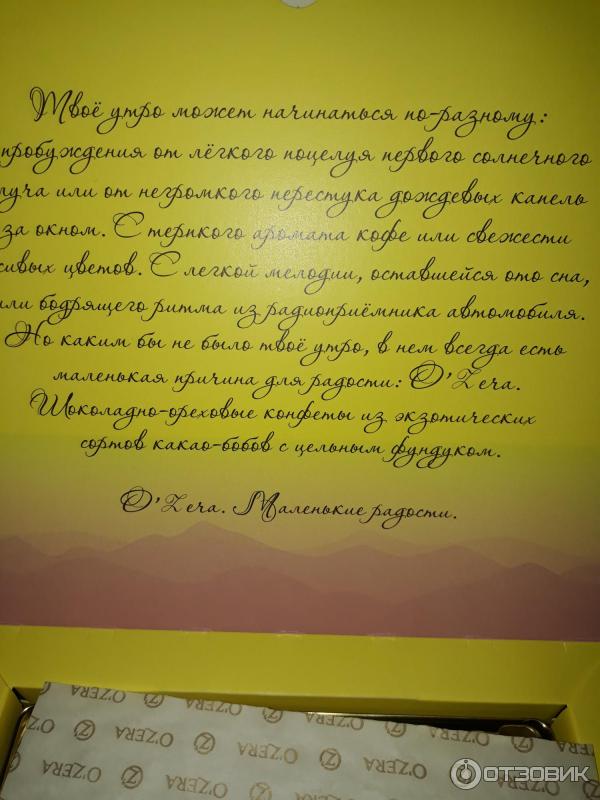 Твоё утро может начинаться по-разному:
пробуждения от лёгкого поцелуя первого солнечного
луча или от негромкого перестука дождевых капель
за окном. С терпкого аромата кофе или свежести
сивых цветов. С легкой мелодии, оставшейся ото сна,
или бодрящего ритма из радиоприёмника автомобиля.
Но каким бы не было твоё утро, в нем всегда есть
маленькая причина для радости: O'Zera.
Шоколадно-ореховые конфеты из экзотических
сортов какао-бобов с цельным фундуком.
O'Zera. Маленькие радости.
O'ZERA O'ZERA O'ZERA O'ZERA
O'ZERA O'ZERA O'ZERA O'ZERA
ОТЗОВИК